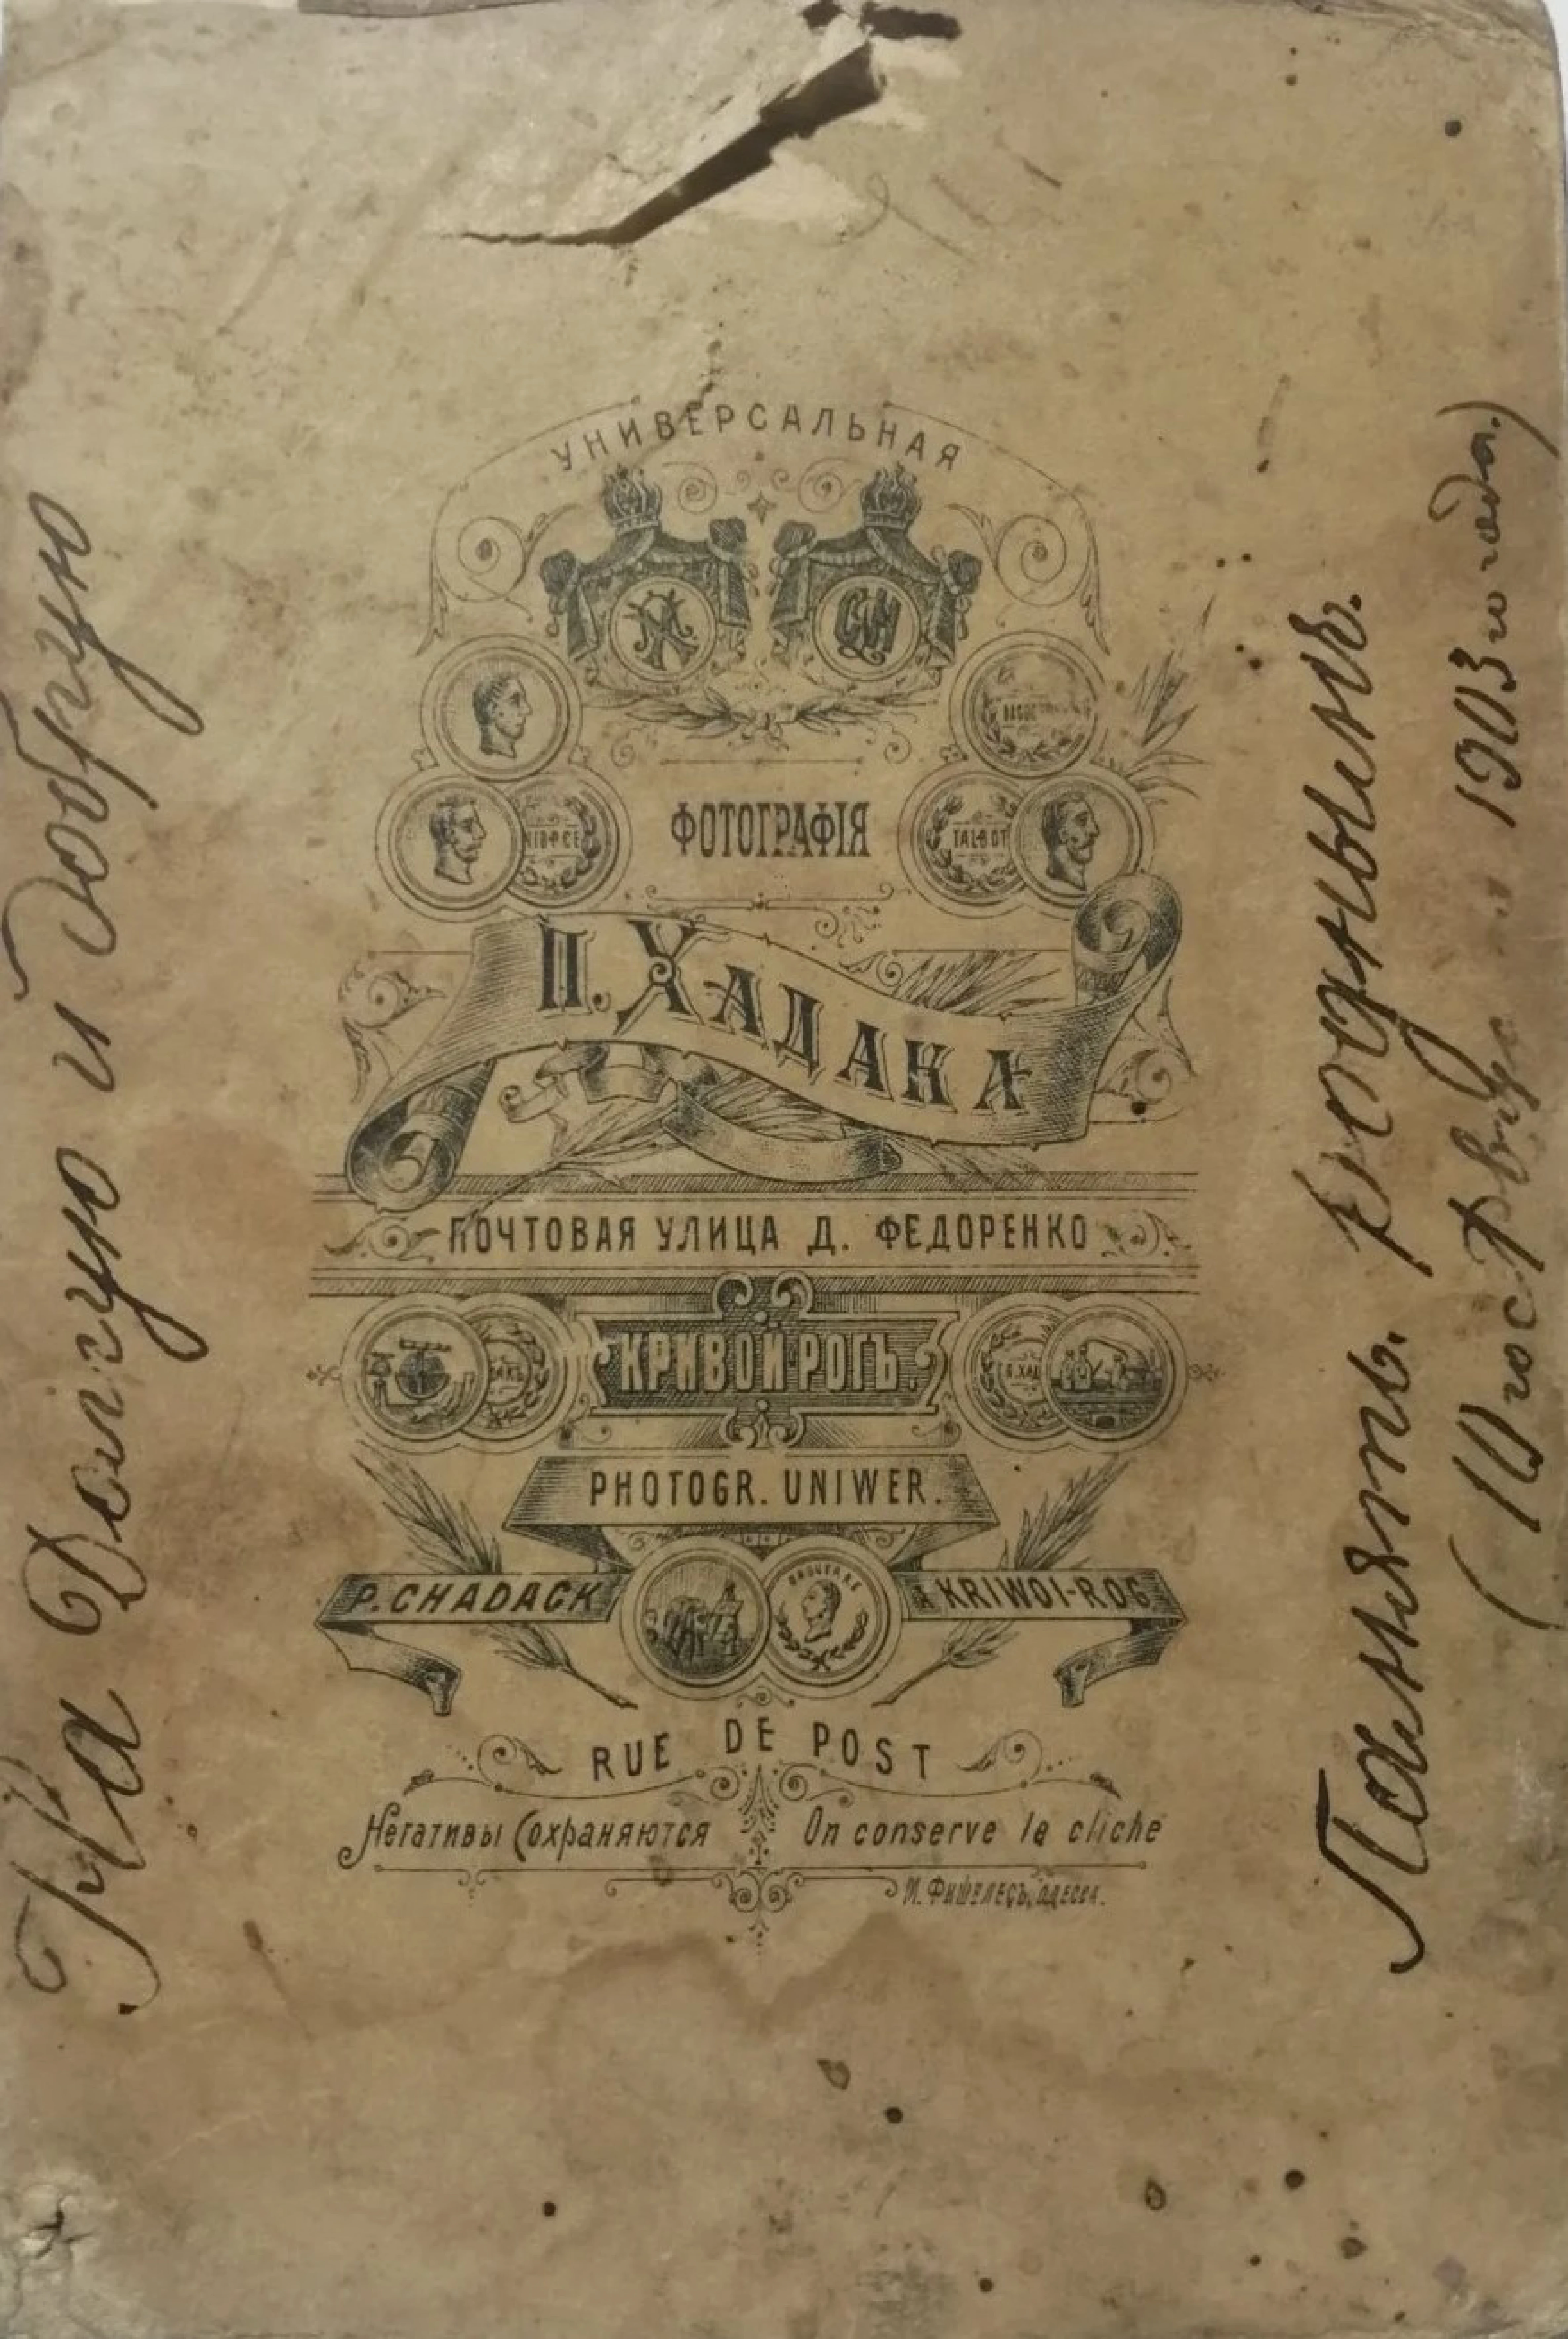 На Долгую и добрую
УНИВЕРСАЛЬНАЯ
NIEPCE
TALBOT
ФОТОГРАФІЯ
П. ХАДАКА
ПОЧТОВАЯ УЛИЦА Д. ФЕДОРЕНКО
КРИВОЙ-РОГЪ.
PHOTOGR. UNIWER.
P. CHADACK
À KRIWOI-ROG
RUE DE POST
Негативы Сохраняются
On conserve le cliche
И. ФИШЕЛЕСЪ, ОДЕССА.
Память. роднымъ.
(10го 1903 го года.)